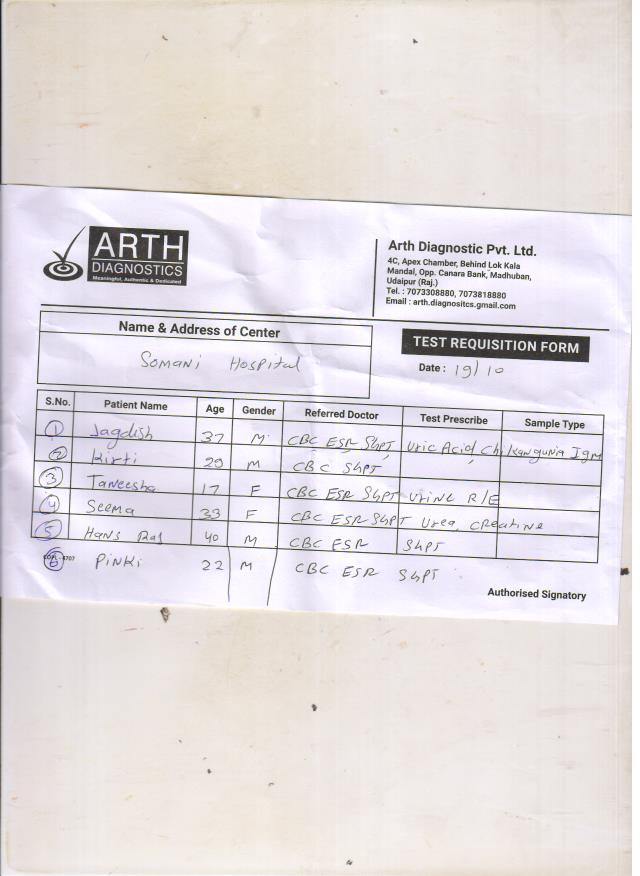 ARTH
DIAGNOSTICS
Meaningful, Authentic & Dedicated
Arth Diagnostic Pvt. Ltd.
4C, Apex Chamber, Behind Lok Kala
Mandal, Opp. Canara Bank, Madhuban,
Udaipur (Raj.)
Tel. : 7073308880, 7073818880
Email : arth.diagnositcs.gmail.com
Name & Address of Center
Somani Hospital
TEST REQUISITION FORM
Date : 19/10
S.No. Patient Name Age Gender Referred Doctor Test Prescribe Sample Type
1 Jagdish 37 M CBC, ESR, SGPT, Uric Acid, Chikangunia Igm
2 Kirti 29 M CBC SGPT
3 Taneesha 17 F CBC ESR SGPT Urine R/E
4 Seema 33 F CBC ESR SGPT Urea, Creatine
5 Hans Raj 40 M CBC ESR SGPT
6 Pinki 22 M CBC ESR SGPT
Authorised Signatory